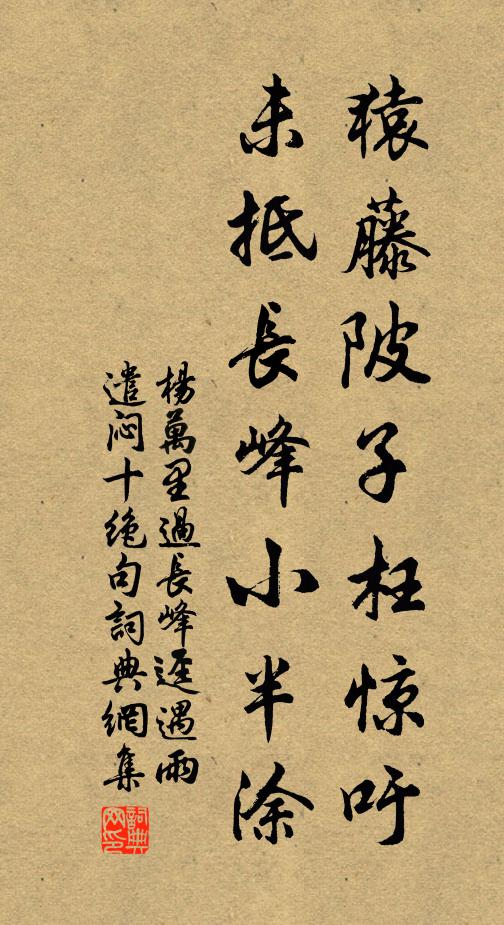 猿藤陂子枉惊吁
未抵長峰小半涂
楊萬里過長峰逕遇雨
遣闷十绝句詞典網集
詞典网印